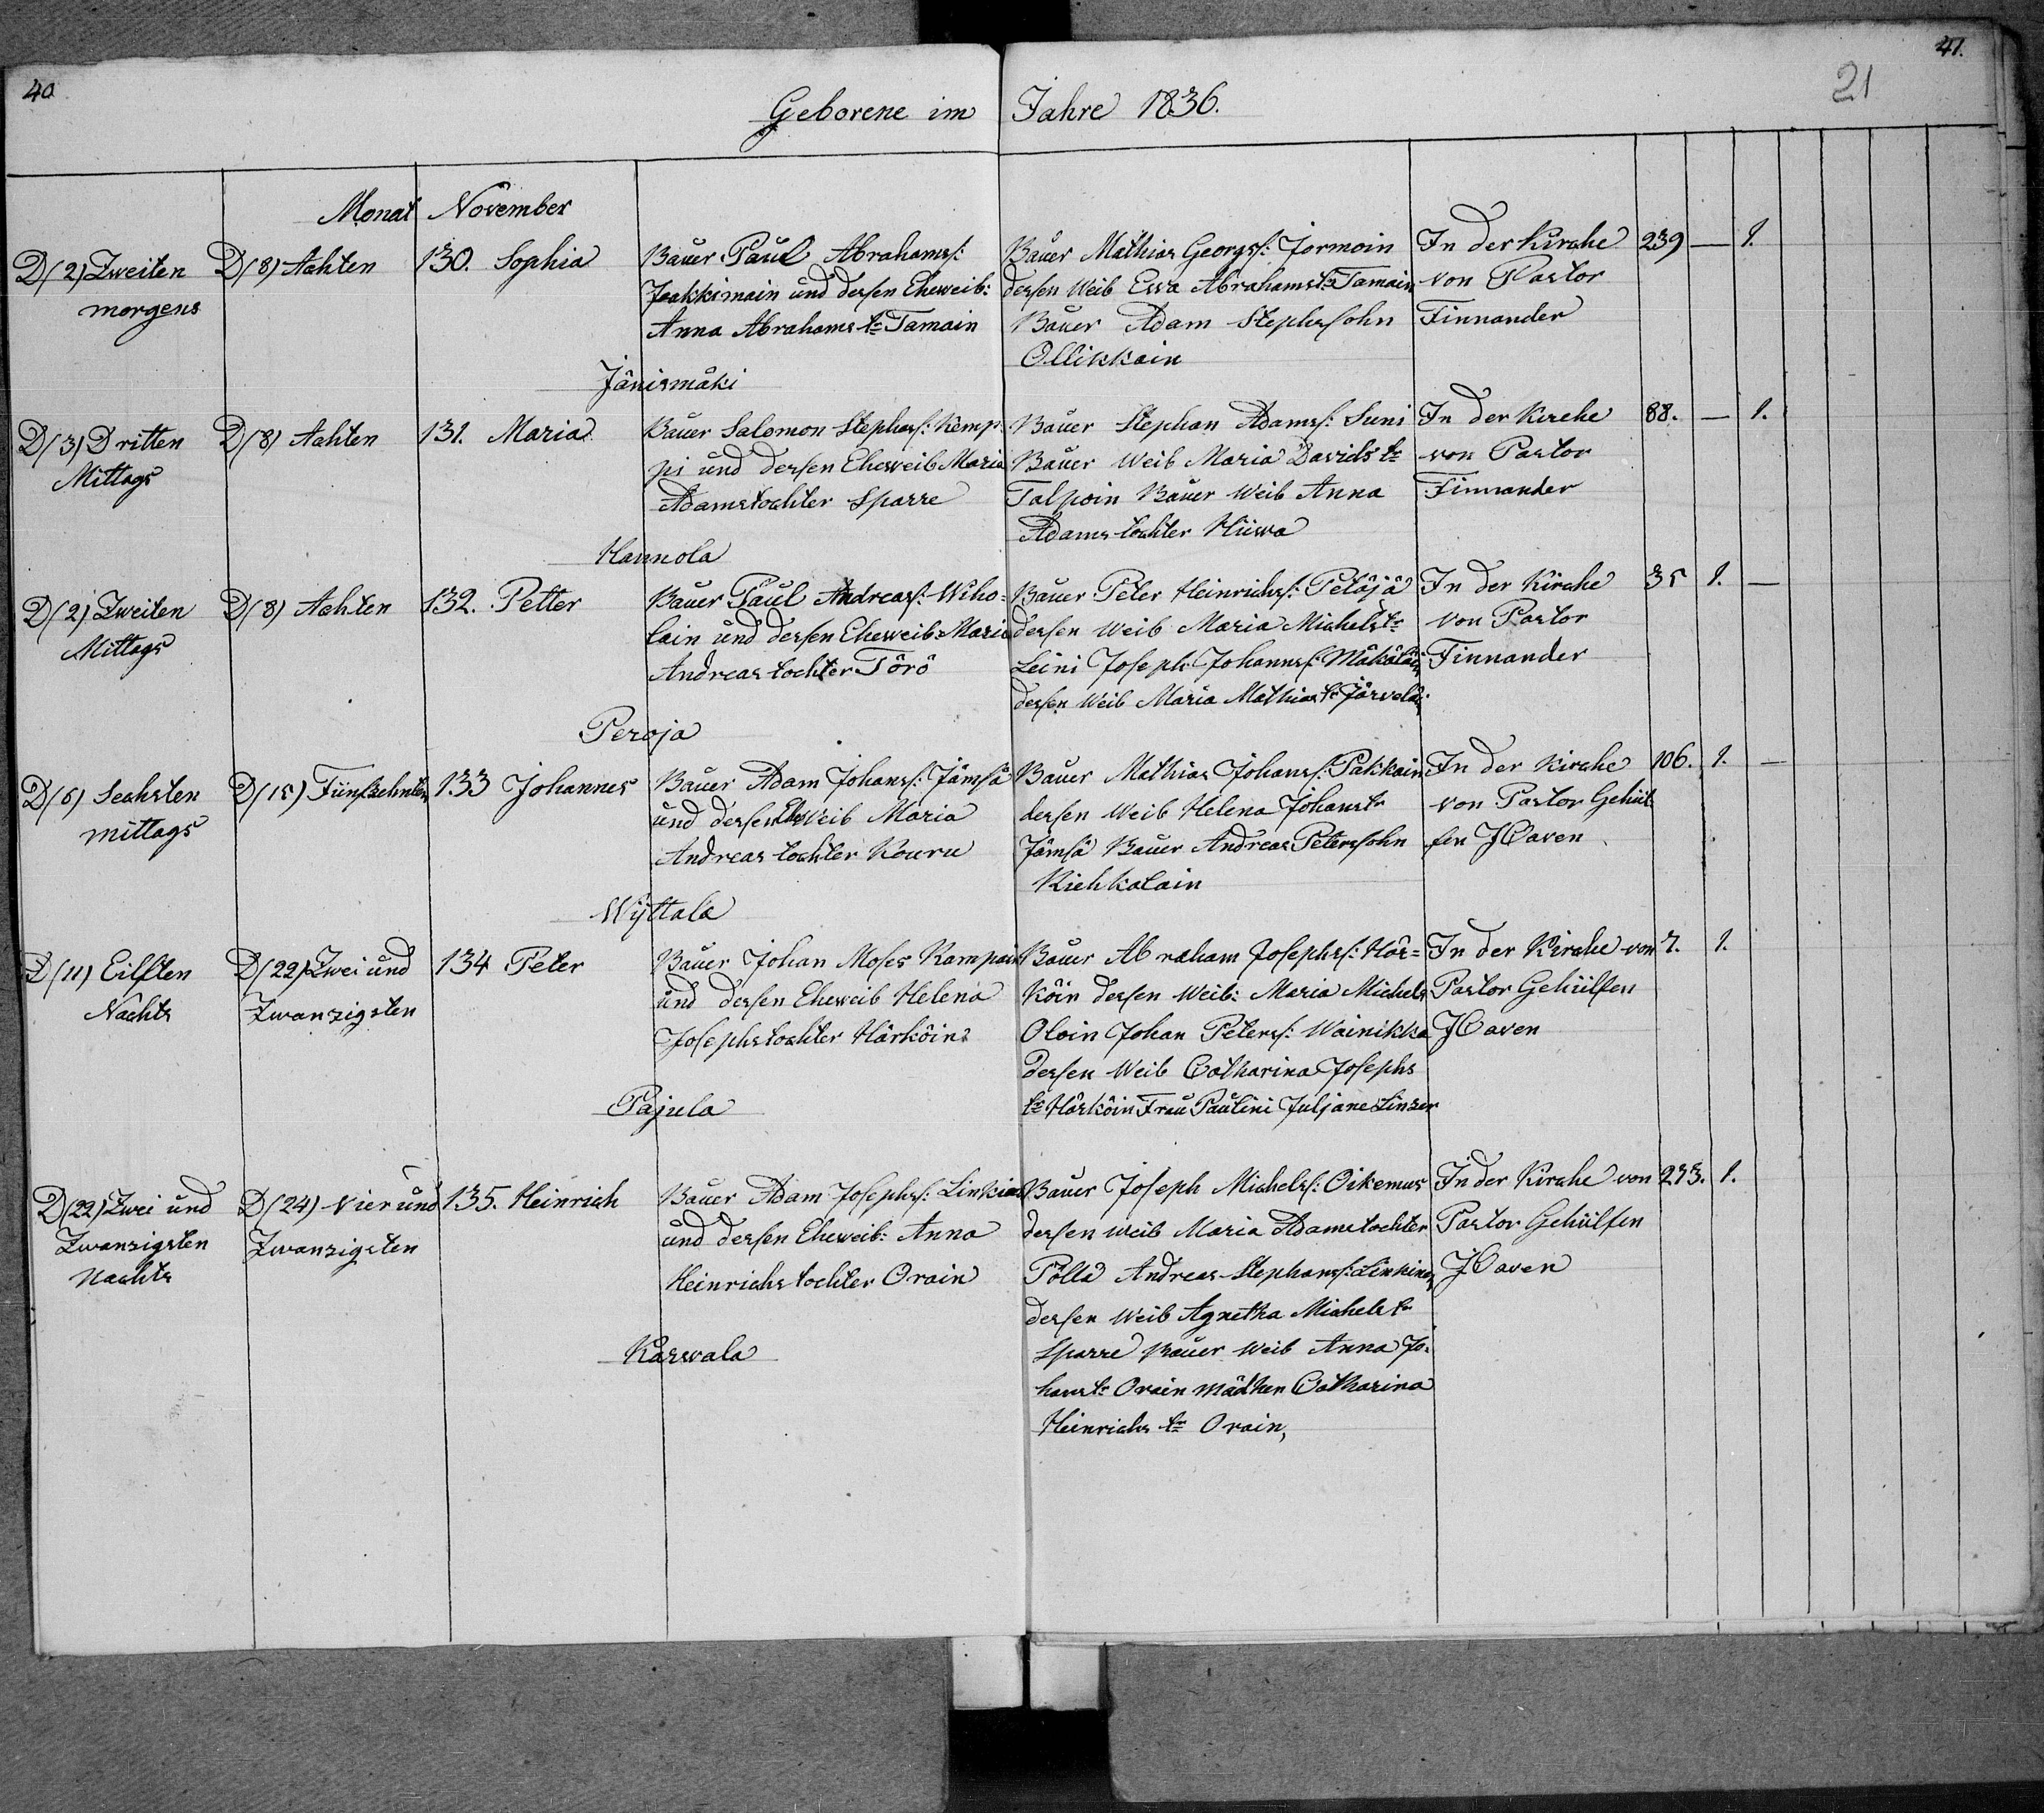 40
41.
21
Geborene im Jahre 1836.
Monat November
D(2) Zweiten
morgens
D(8) Achten
130. Sophia
Bauer Paul Abrahams:
Jaakkimain und dessen Eheweib:
Anna Abrahams tr Tamain
Bauer Mathias Georgs: Jormoin
dessen Weib Ewa Abrahamstr Tamain
Bauer Adam Stephssohn
Ollikkain
In der Kirche
von Pastor
Finnander
239 — 1.
Jänismäki
D(3) Dritten
Mittags
D(8) Achten
131. Maria
Bauer Salomon Stephs: Kemp-
pi und dessen Eheweib Maria
Adamstochter Sparre
Bauer Stephan Adams: Suni
Bauer Weib Maria Davids tr
Talpoin Bauer Weib Anna
Adams tochter Hüwa
In der Kirche
von Pastor
Finnander
88. — 1.
Hannola
D(2) Zweiten
Mittags
D(8) Achten
132. Petter
Bauer Paul Andreas: Wiho=
lain und dessen Eheweib: Maria
Andreas tochter Törö
Bauer Peter Heinrichs: Petäjä
dessen Weib Maria Michels tr
Leini Joseph Johanns: Mäkäläin
dessen Weib Maria Mathias tr Järveläi
In der Kirche
von Pastor
Finnander
35 1. —
Peroja
D(6) Sechsten
mittags
D(15) Fünfzehnten
133 Johannes
Bauer Adam Johans: Jämsä
und dessen Eheweib Maria
Andreas tochter Kouru
Bauer Mathias Johans: Pakkain
dessen Weib Helena Johans tr
Jämsä Bauer Andreas Peterssohn
Kiehkalain
In der Kirche
von Pastor Gehül
fen JCaven
106. 1. —
Wÿttala
D(11) Eilften
Nachts
D(22) Zwei und
Zwanzigsten
134 Peter
Bauer Johan Moses Rampain
und dessen Eheweib Helena
Josephs tochter Härköin
Bauer Abraham Josephs: Här=
köin dessen Weib: Maria Michels
Oloin Johan Peters: Wainikka
dessen Weib Catharina Josephs
tr Härköin Frau Paulini Juljane Linser
In der Kirche von
Pastor Gehülfen
JCaven
7. 1.
Pajula
D(22) Zwei und
Zwanzigsten
Nachts
D(24) Vier und
Zwanzigsten
135. Heinrich
Bauer Adam Josephs: Linkien
und dessen Eheweib: Anna
Heinrichs tochter Orain
Bauer Joseph Michels: Oikemus
dessen Weib Maria Adamstochter
Pöllä Andreas Stephans: Linkinen
dessen Weib Agnetha Michels tr
Sparre Bauer Weib Anna Jo-
hans tr Orain mädchen Catharina
Heinrichs tr Orain,
In der Kirche von
Pastor Gehülfen
JCaven
273. 1.
Karwala